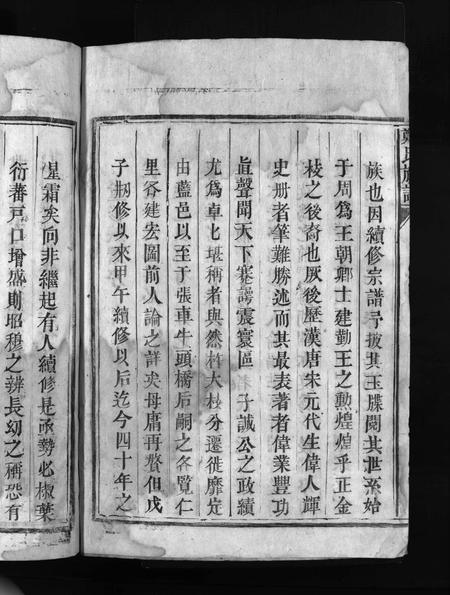 鄭氏族譜
族也因續修宗譜尋披其玉牒閱其世系始
于周為王朝卿士建勤王之勲煌煌乎正金
枝之後裔也厥後歷漢唐宋元代生偉人輝
史册者筆難勝述而其最表著者偉業豐功
眞聲聞天下蹇諤震寰區 子誠公之政績
尤為卓七堪稱者與然柞大枝分遷徙靡定
由藍邑以至于張車牛頭橋后嗣之各覽仁
里爷建宏圖前人論之詳矣毋庸再贅但戊
子剏修以來甲午續修以后迄今四十年之
星霜矣向非繼起有人續修是亟勢必椒葉
衍蕃戸口增盛則昭穆之辨長幼之稱恐有